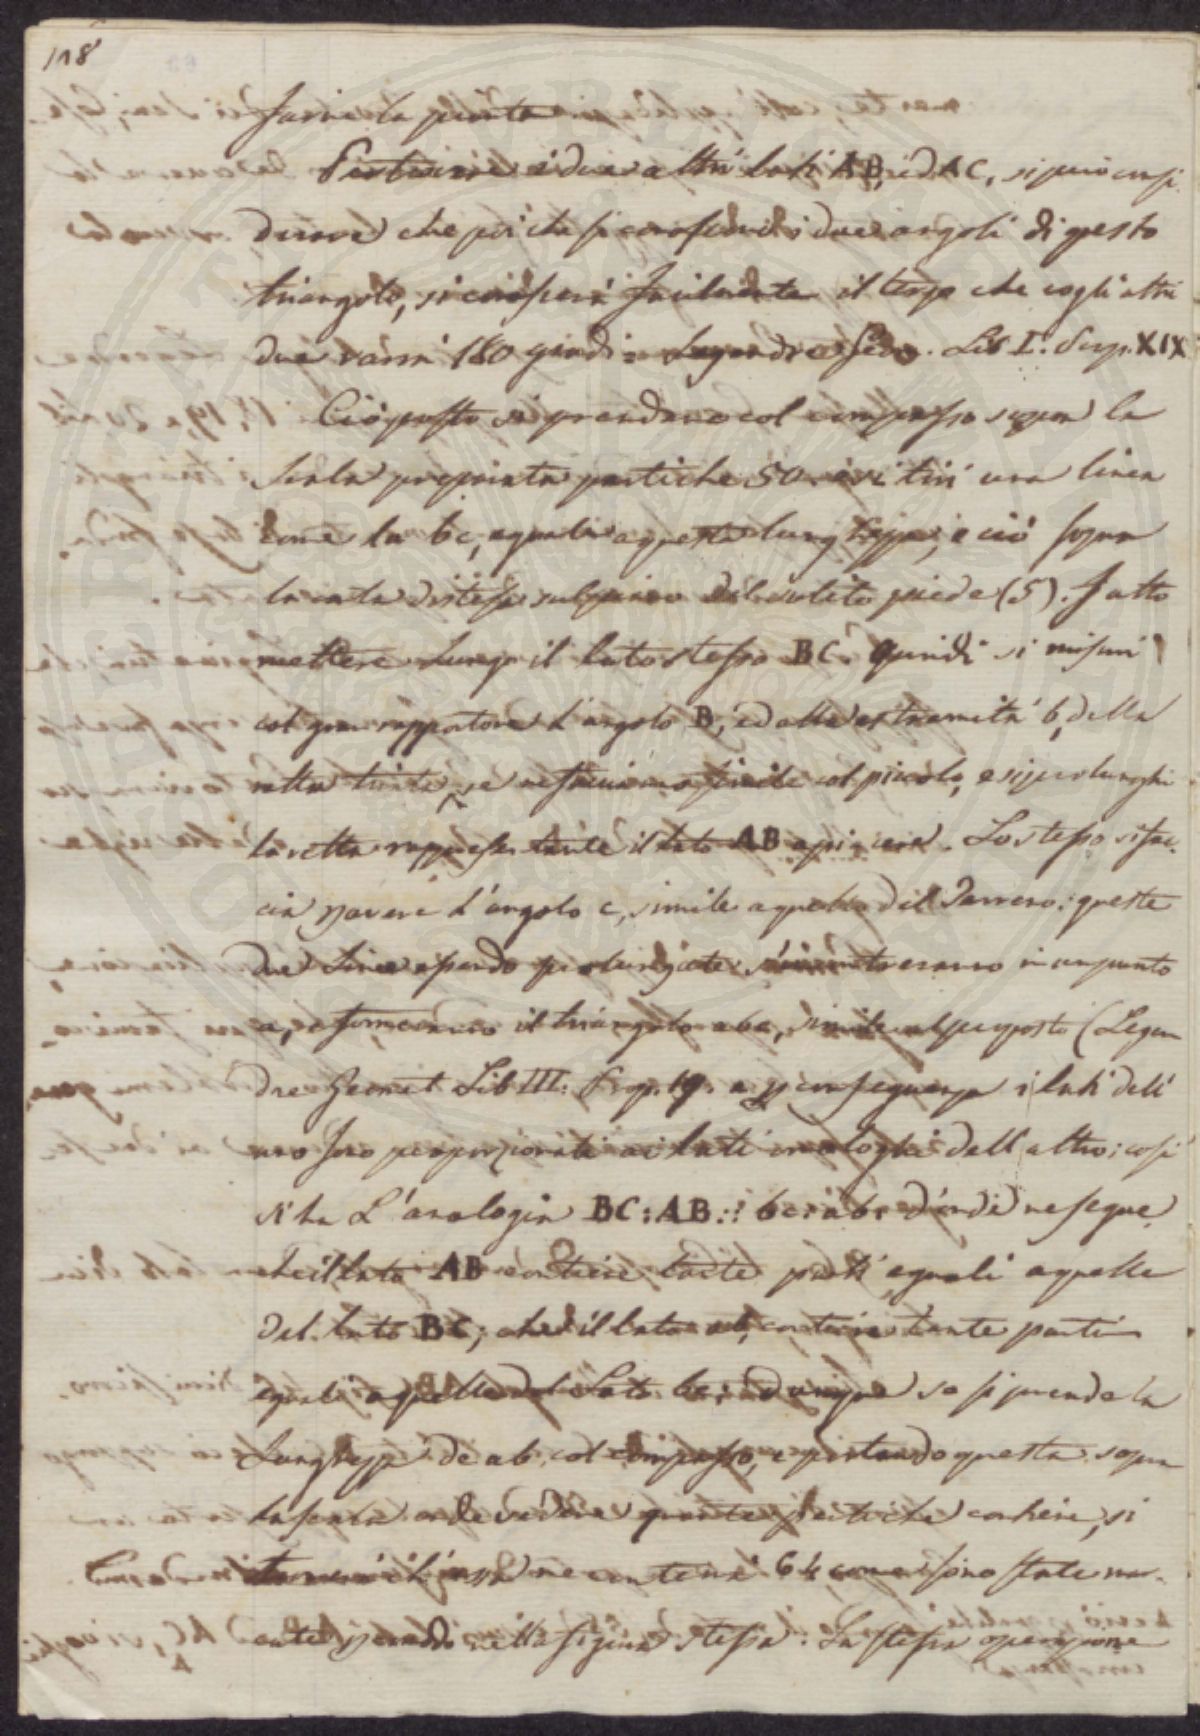 118
farne la pianta
Per trovare i due altri lati AB, ed AC, si può consi-
derare che poiche si conoscendi i due angoli di questo
triangolo, si conoscerà facilmente il terzo che cogli altri
due varrà 180 gradi = Legendre Geo. Lib I. Prop. XIX
Ciò posto si prendano col compasso sopra la
scala preparata pertiche 50 e si tiri una linea
come la bc, eguale a questa lunghezza, e ciò sopra
la carta distesa sul piano del solito piede (5). Fatto
mettere lungo il lato stesso BC. Quindi si misuri
col gran rapportore l'angolo B, ed alla estremità b, della
retta tirata, se ne faccia uno simile col piccolo, e si prolunghi
la retta rappresentante il lato AB a piacere. Lo stesso si fac-
cia per avere l'angolo c, simile a quello del Terreno: queste
due linee essendo prolungate s'incontreranno in un punto
a, e formeranno il triangolo abc, simile al proposto (Legen
dre Geomet. Lib III. Prop. 19. e per conseguenza i lati dell'
uno sono proporzionati ai lati omologhi dell'altro: così
si ha L'analogia BC:AB:: bc:ab: d'indi ne segue,
che il lato AB contiene tante parti eguali a quelle
del lato BC, che il lato ab, contiene tante parti
eguali a quelle del lato bc; dunque se si prende la
Lunghezza de ab, col compasso, e portando questa sopra
la scala onde vedere quante pertiche contiene, si
troverà ch'essa ne contenà 64 come sono state mar-
cate secondo nella figura stessa. La stessa operazione